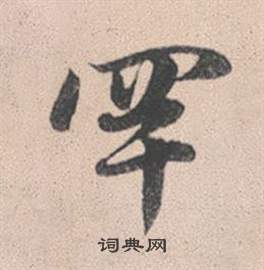 罕
词典网